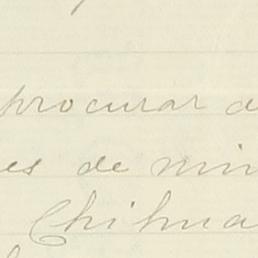 procurar a
es de min
Chihua